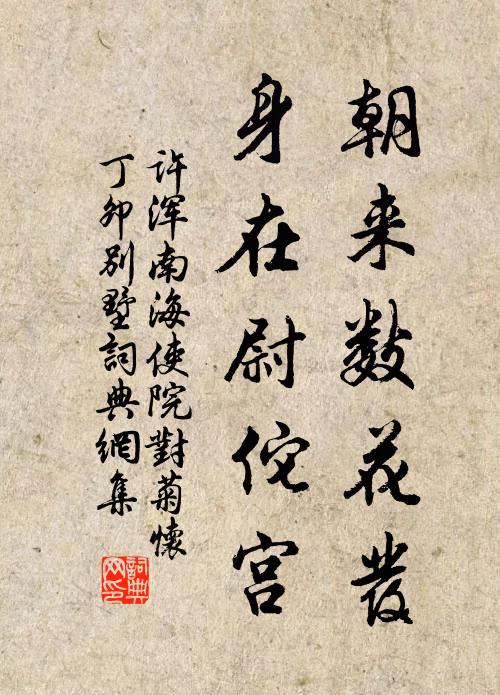 朝来数花发
身在尉佗宫
许浑南海使院對菊懷
丁卯别墅詞典網集
詞典网印